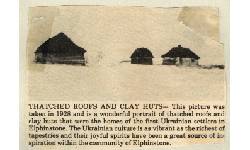 THATCHED ROOFS AND CLAY HUTS— This picture was
taken in 1928 and is a wonderful portrait of thatched roofs and
clay huts that were the homes of the first Ukrainian settlers in
Elphinstone. The Ukrainian culture is as vibrant as the richest of
tapestries and their joyful spirits have been a great source of in-
spiration within the community of Elphinstone.